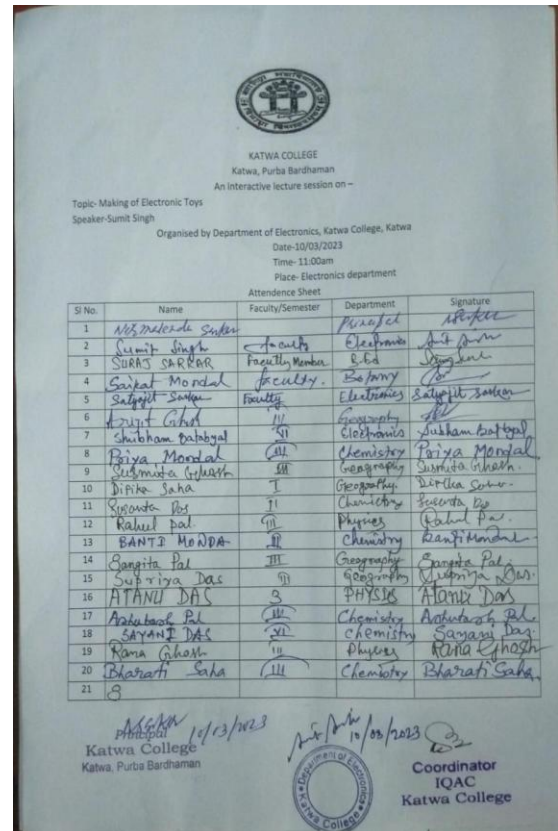 KATWA COLLEGE
Katwa, Purba Bardhaman
An interactive lecture session on –
Topic- Making of Electronic Toys
Speaker-Sumit Singh
Organised by Department of Electronics, Katwa College, Katwa
Date-10/03/2023
Time- 11:00am
Place- Electronics department
Attendence Sheet
Sl No. Name Faculty/Semester Department Signature
1 Principal
2 Sumit Singh faculty Electronics
3 SURAJ SARKAR Faculty Member B.Ed
4 Saikat Mondal faculty. Botany
5 Satyajit Sarkar Faculty Electronics Satyajit Sarkar
6 Arijit Ghosh III Geography
7 Shubham Batabyal VI Electronics
8 Priya Mondal III Chemistry Priya Mondal
9 Susmita Ghosh III Geography Susmita Ghosh.
10 Dipika Saha I Geography.
11 Susanta Das Chemistry
12 Rahul pal. III Physics Rahul
13 BANTI MONDA Chemistry Banti Mondal
14 Sangita Pal III Geography Sangita Pal
15 Supriya Das Geography Supriya Das.
16 ATANU DAS 3 PHYSICS Atanu Das
17 Ashutosh Pal III Chemistry Ashutosh Pal
18 SAYANI DAS VI chemistry Sayani Das
19 Rana Ghosh III Physics Rana Ghosh
20 Bharati Saha III Chemistry Bharati Saha
21
10/03/2023
Principal
Katwa College
Katwa, Purba Bardhaman
10/03/2023
Department of Electronics
Katwa College
Coordinator
IQAC
Katwa College